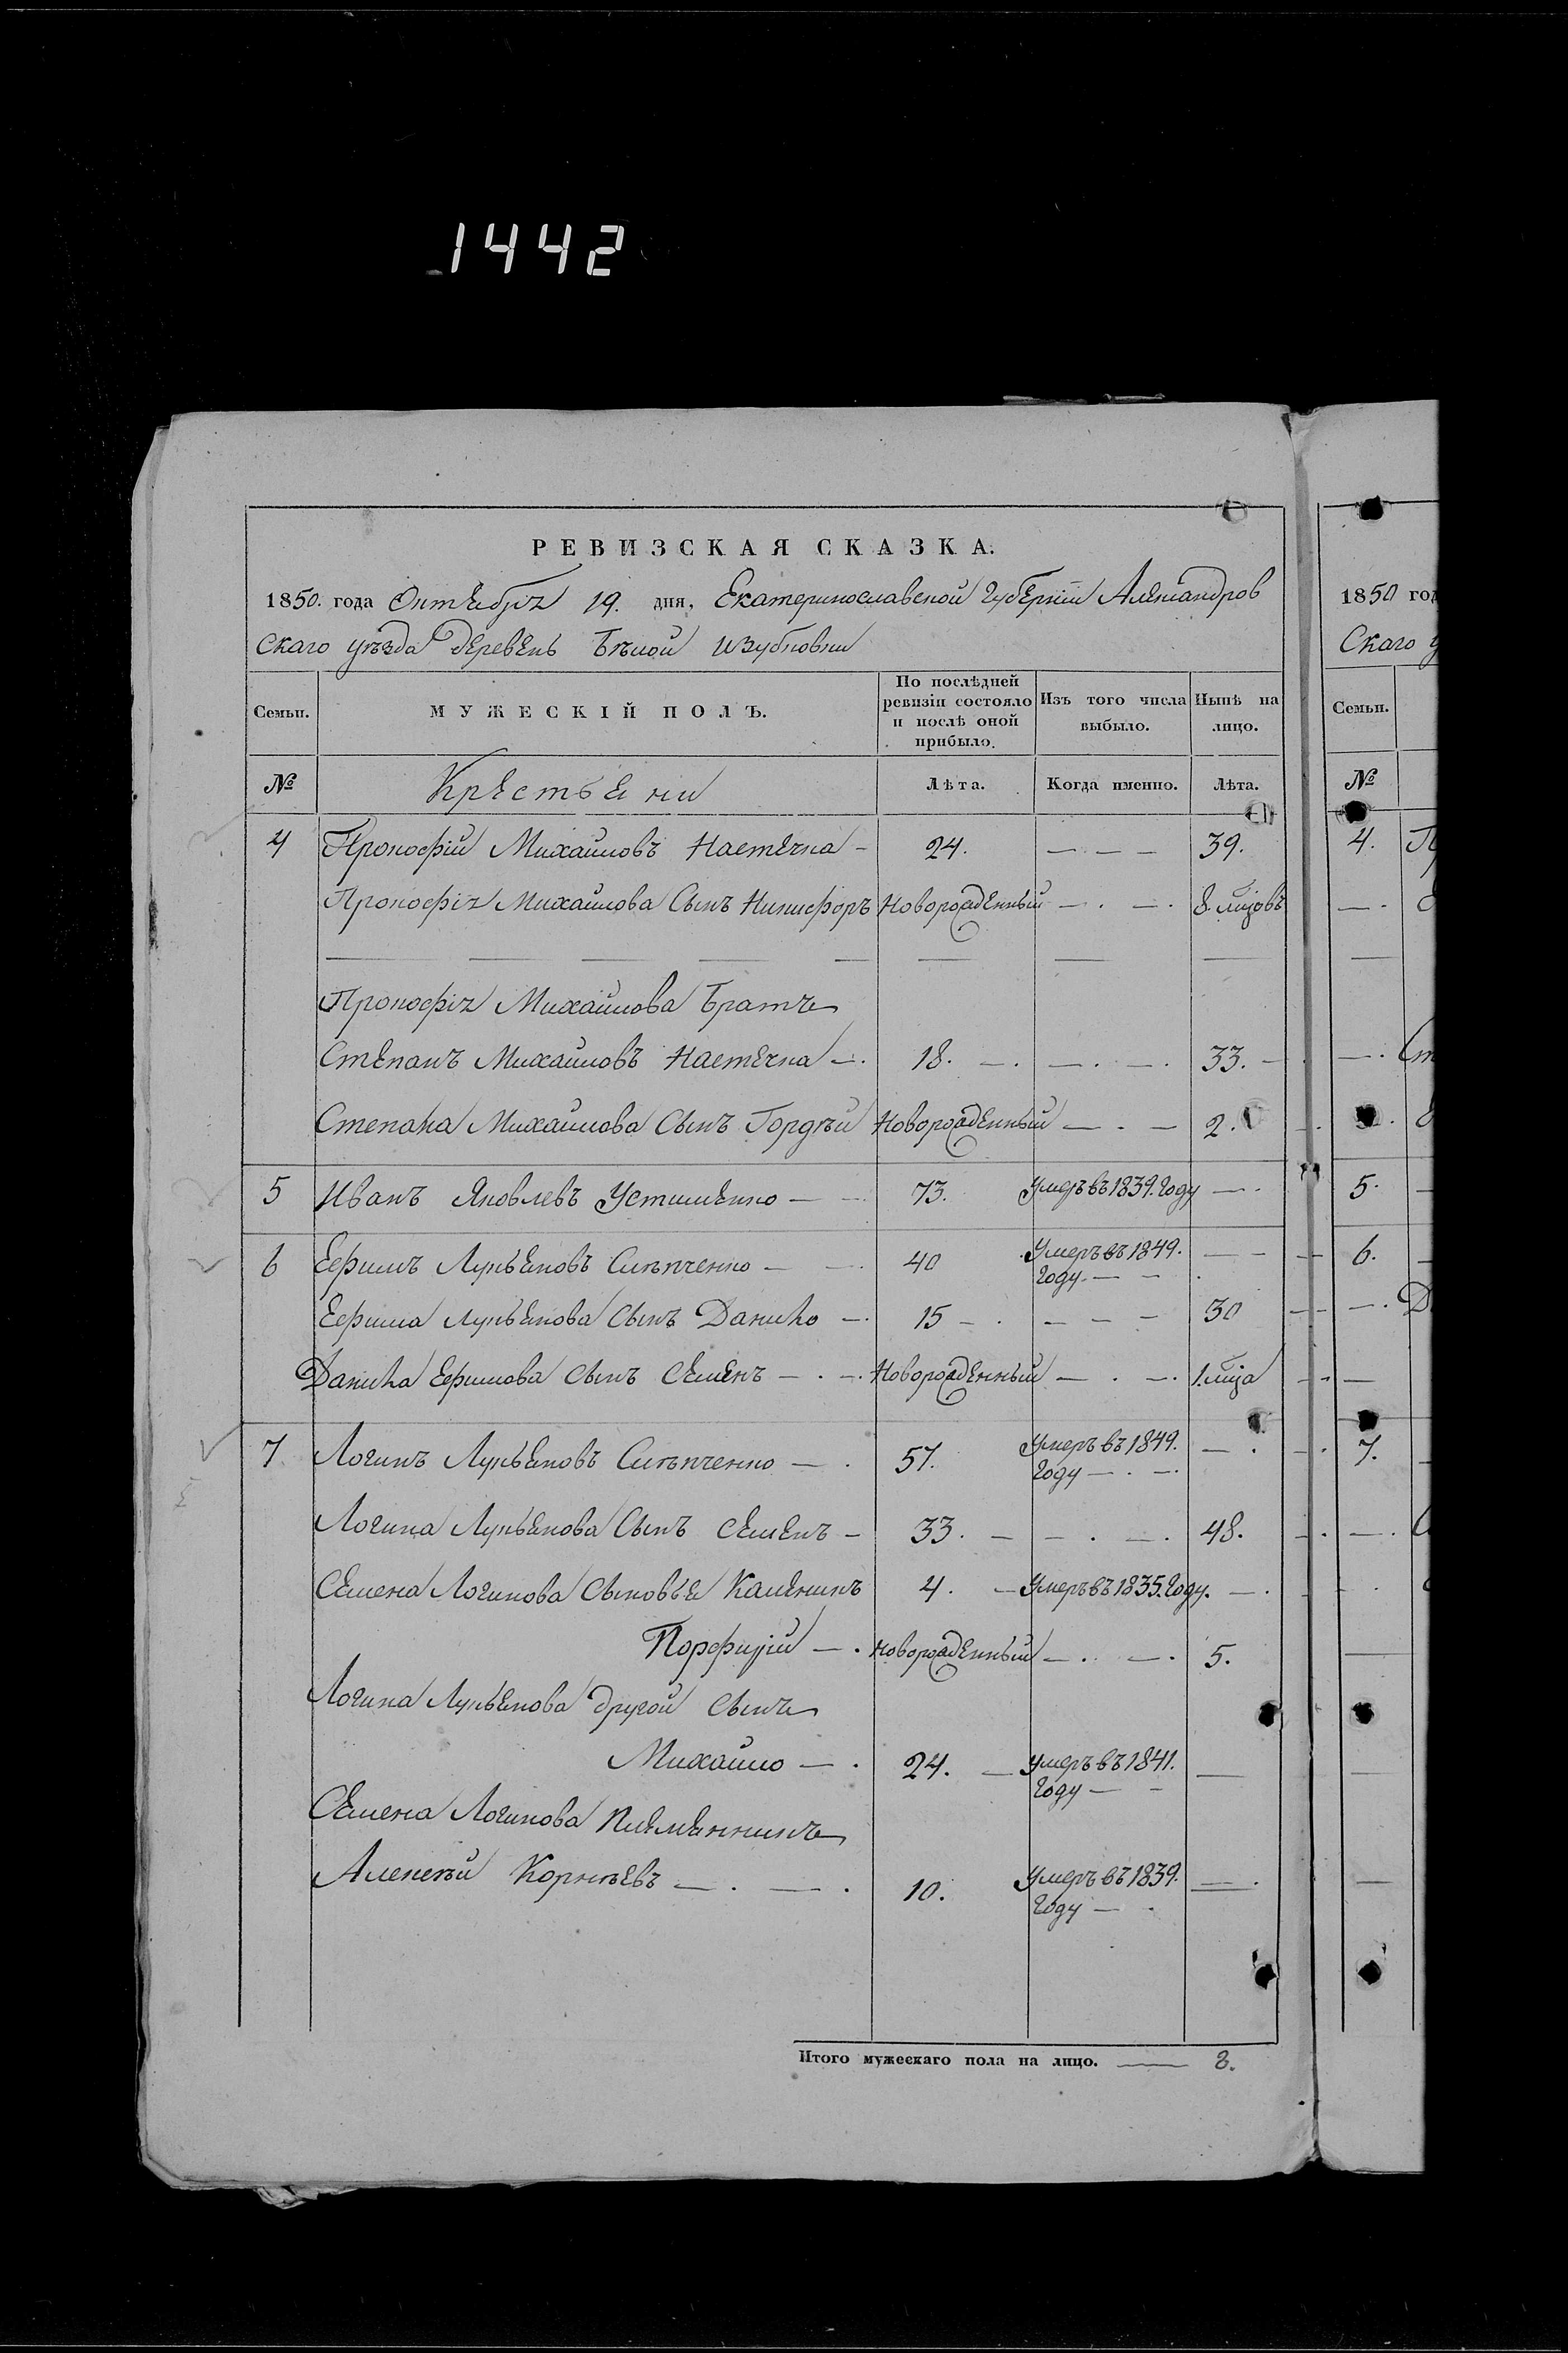 1442
РЕВИЗСКАЯ СКАЗКА.
1850. года Октября 19. дня, Екатеринославской Губерніи Александров
скаго уѣзда деревень Бѣлой
Семьи. МУЖЕСКІЙ ПОЛЪ. По послѣдней ревизіи состояло и послѣ оной прибыло. Изъ того числа выбыло. Нынѣ на лицо.
№ Крестьяни Лѣта. Когда именно. Лѣта.
4 Прокофій Михайловъ Настечка — 24. — — — 39.
Прокофія Михайлова Сынъ Никифоръ Новорожденный — . — . 8. мцовъ
Прокофія Михайлова Братъ
Степанъ Михайловъ Настечка — . 18. — . — . — . 33. —
Степана Михайлова Сынъ Гордѣй Новорожденный — . — 2.
5 Иванъ Яковлевъ Устименко — — 73. Умеръ въ 1839. Году — .
6 Ефимъ Лукьяновъ Слѣпченко — — . 40 Умеръ въ 1849. — —
Году. — —
Ефима Лукьянова Сынъ Данило — . 15 — . — — — 30
Данила Ефимова Сынъ Семенъ — . — . Новорожденный — . — . 1. мца
7 Логинъ Лукьяновъ Слѣпченко — . 57. Умеръ въ 1849. — .
Году — . — .
Логина Лукьянова Сынъ Семенъ — 33. — — . — . 48.
Семена Логинова Сыновья Каленикъ 4. — Умеръ въ 1835. Году. — .
Порфирій — . новорожденный — . — . 5.
Логина Лукьянова другой Сынъ
Михайло — . 24. — Умеръ въ 1841. —
Году — —
Семена Логинова племянникъ
Алексѣй Корнѣевъ — . — . 10. Умеръ въ 1839. — .
Году — .
Итого мужескаго пола на лицо. — 8.
1850 год
Скаго у
Семьи.
№
4. П
5.
6.
7.